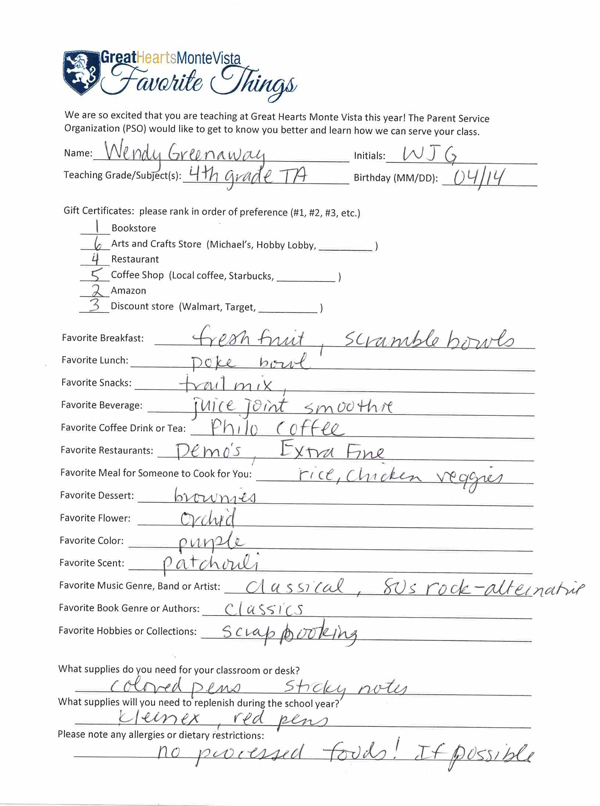 GreatHeartsMonteVista
Favorite Things
We are so excited that you are teaching at Great Hearts Monte Vista this year! The Parent Service
Organization (PSO) would like to get to know you better and learn how we can serve your class.
Name: Wendy Greenaway Initials: WJG
Teaching Grade/Subject(s): 4th grade TA Birthday (MM/DD): 04/14
Gift Certificates: please rank in order of preference (#1, #2, #3, etc.)
1 Bookstore
6 Arts and Crafts Store (Michael's, Hobby Lobby, __________ )
4 Restaurant
5 Coffee Shop (Local coffee, Starbucks, __________ )
2 Amazon
3 Discount store (Walmart, Target, __________ )
Favorite Breakfast: fresh fruit, scramble bowls
Favorite Lunch: poke bowl
Favorite Snacks: trail mix,
Favorite Beverage: juice joint smoothie
Favorite Coffee Drink or Tea: Philo coffee
Favorite Restaurants: Demo's, Extra Fine
Favorite Meal for Someone to Cook for You: rice, chicken veggies
Favorite Dessert: brownies
Favorite Flower: orchid
Favorite Color: purple
Favorite Scent: patchouli
Favorite Music Genre, Band or Artist: classical, 80s rock-alternative
Favorite Book Genre or Authors: classics
Favorite Hobbies or Collections: scrapbooking
What supplies do you need for your classroom or desk?
colored pens sticky notes
What supplies will you need to replenish during the school year?
kleenex, red pens
Please note any allergies or dietary restrictions:
no processed foods! If possible